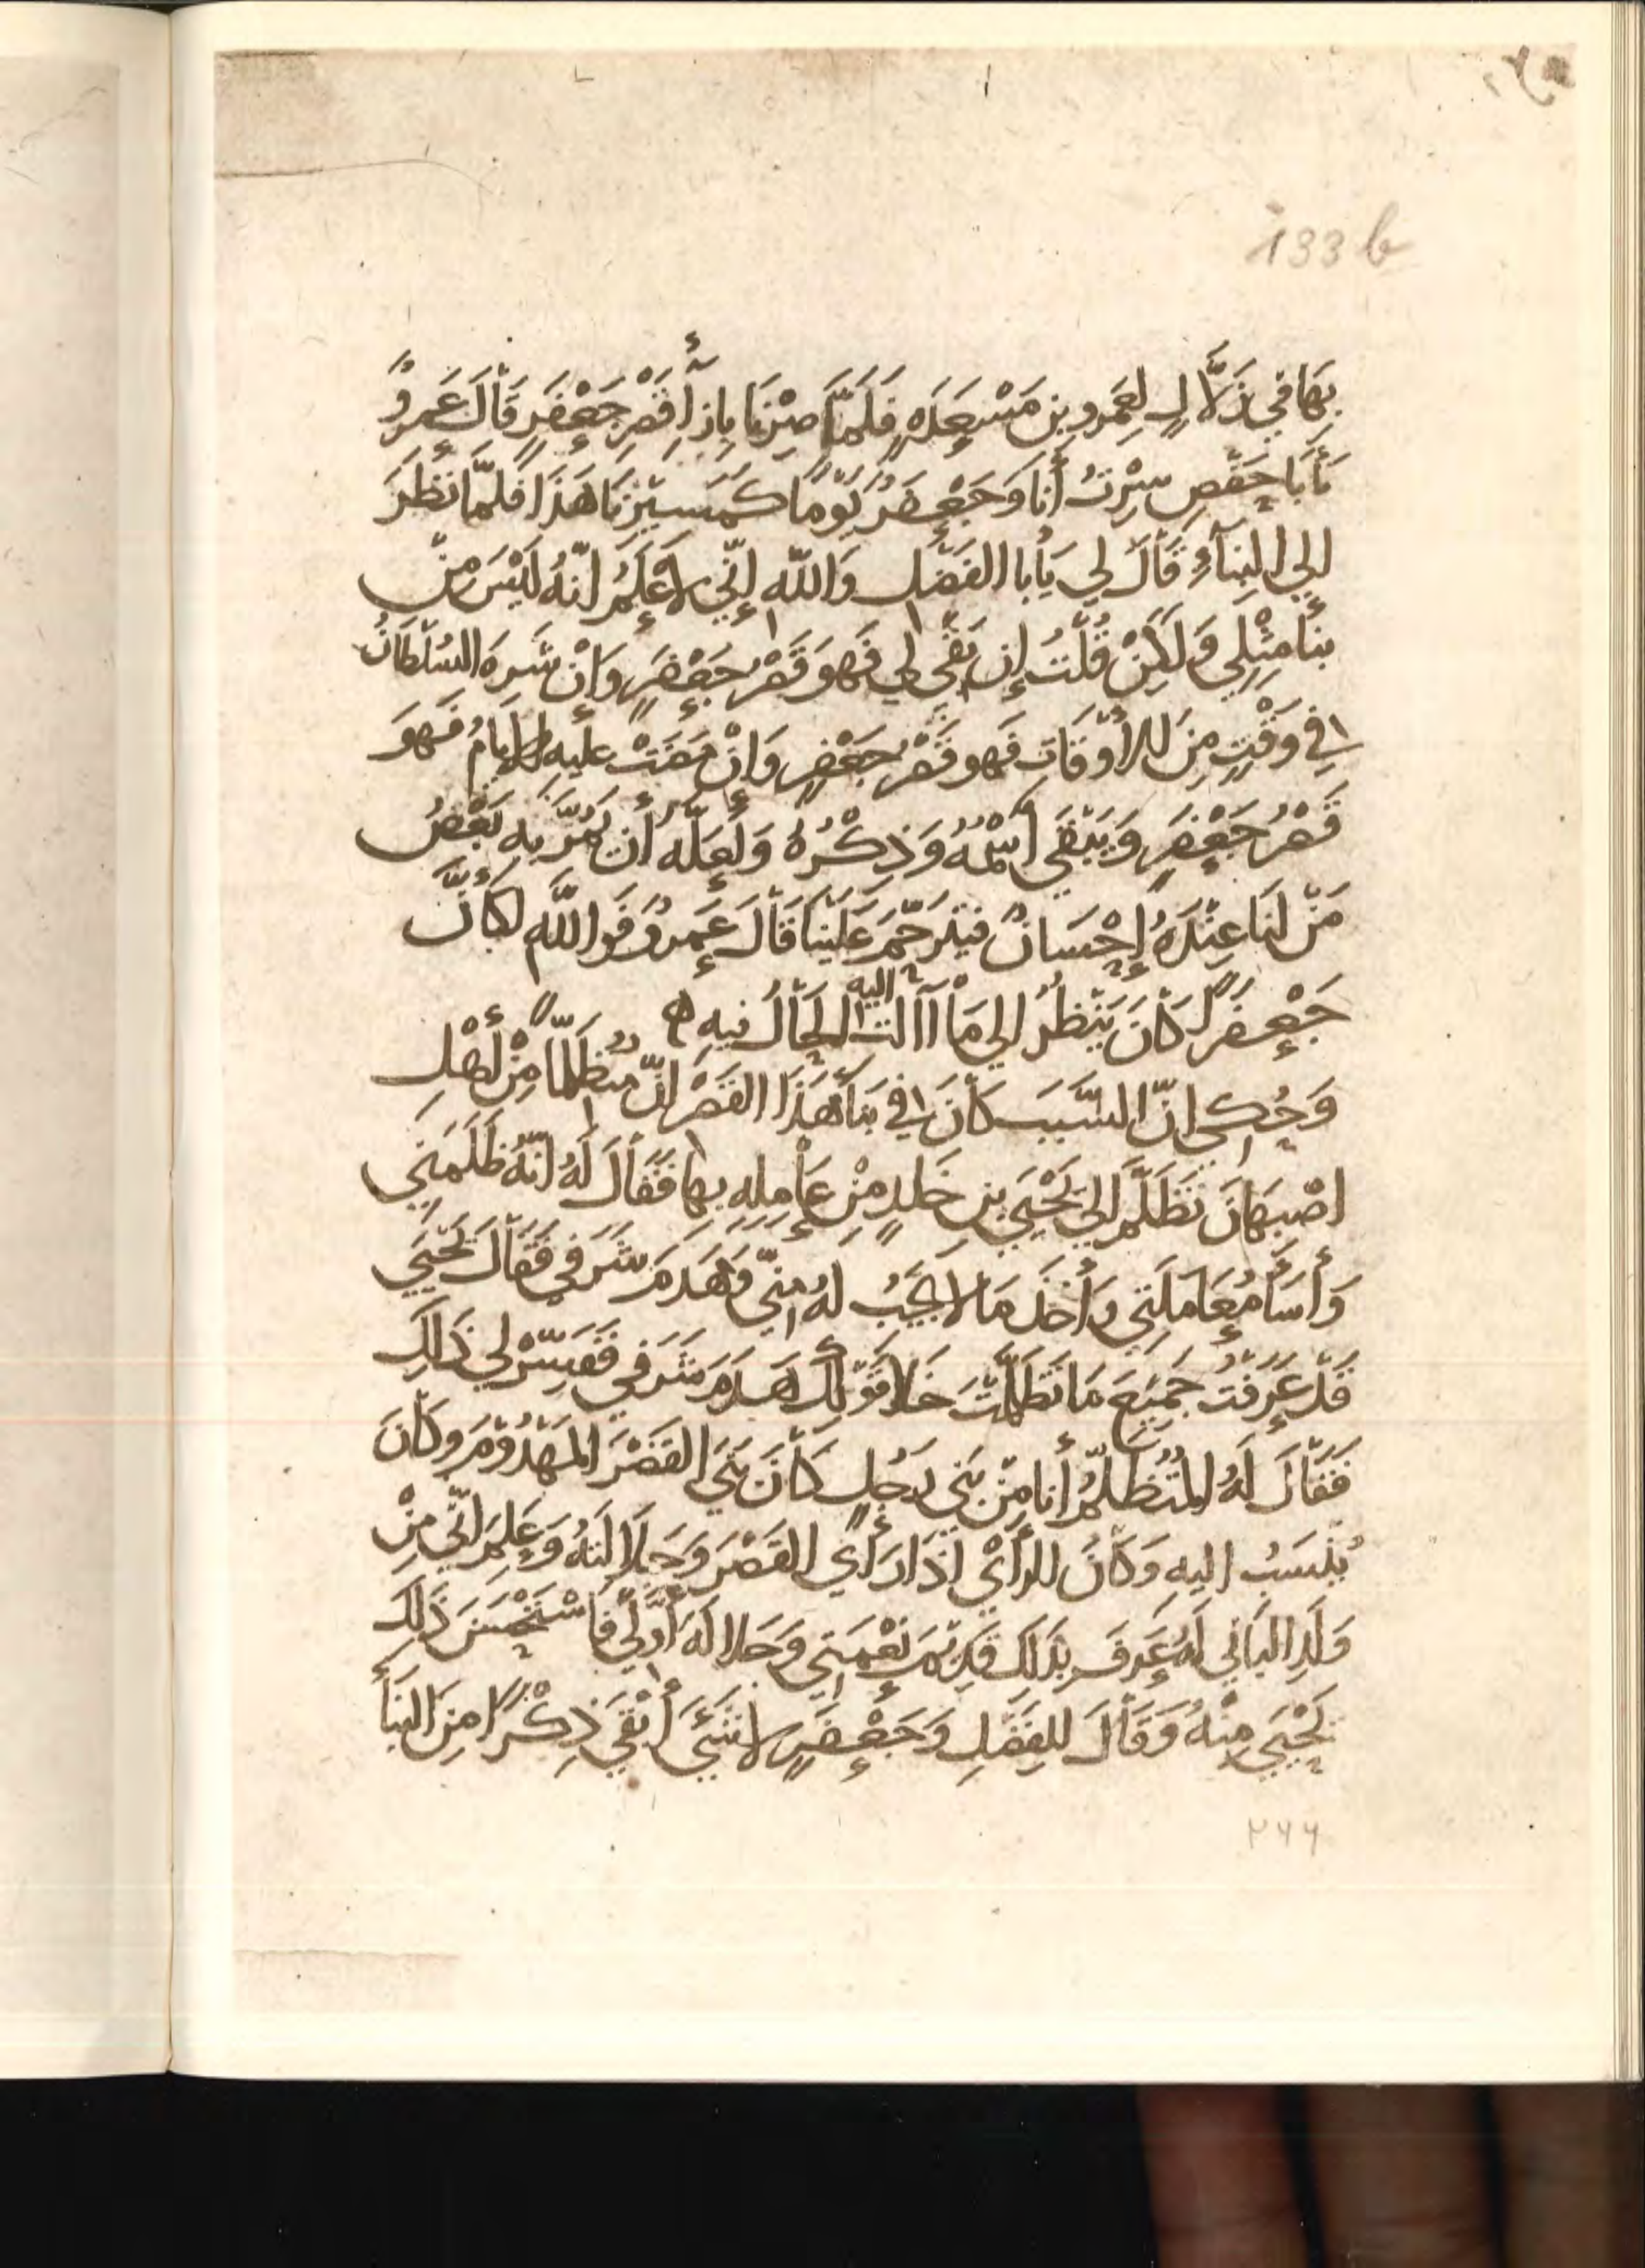 133 b
بِهَا فِي زَلَّالٍ لِعَمرو بنِ مَسْعِدَهٍ فَلَمَّا صِرْنَا بِإِزآءِ قَصْرِ جَعْفَرٍ قَالَ عَمروٌ
يَأَبَا حَفْصٍ سِرْتُ أَنَا وَجَعْفَرُ يَوْمًا كَمَسيْرِنَا هَذَا فَلَمَّا نَظَرَ
إلي البنَآءِ قَالَ لِي يَأَبا الفَضْلِ وَاللّه إنّي لَأَعْلَمُ انّهُ لَيْسَ مِنْ
بنَا مِثْلِي وَلَكِنْ قُلْتُ إن بَقِيَ لِي فَهوَ قَصْرُ جَعْفَرٍ وَإنْ شَرِهَ السُلْطَانُ
في وَقْتٍ مِنَ الأَوْقَاتِ فَهو قَصْرُ جَعْفَرٍ وَإنْ مَضَتْ عليهِ الأيامُ فَهوَ
قَصْرُ جَعْفَرٍ وَيَبْقَي اسْمُهُ وَذِكْرُهُ وَلَعَلّه أن يَمُرَّ بِهِ بَعْضُ
مَنْ لنَا عِنْدَهُ إحْسَانٌ فيتَرَحَّمَ عَلَيْنَا قَالَ عَمروٌ فَواللّهِ لكَأنَّ
جَعْفَرًا كَانَ يَنْظُرُ الي مَا آلت اليه الحَالُ فيهِ ه
وَحُكي انّ السَّبَبَ كَانَ في بنَاء هَذَا القَصْرِ انّ مُتظَلّمًا مِنْ أَهْلِ
اصْبهَانَ تَظَلَّمَ الي يَحْيَي بنِ خَلدٍ مِنْ عَامِلِهِ بهَا فَقَالَ لَهُ انّهُ ظَلَمَنِي
وَأَسَاء مُعَامَلَتِي وَأَخَذَ مَا لا يَجِبُ لهُ مِنّي وَهَدَمَ شَرَفي فَقَالَ يَحْيَي
قَدْ عَرَفْتُ جَمِيْعَ مَا تَظَلَّمْتَ خَلا قَوْلِكَ هَدَمَ شَرَفي فَفَسِّرْ لِي ذَالِكَ
فَقَالَ لَهُ المُتَظَلّمُ أنا مِنْ بَنِي رَجُلٍ كَانَ بَنَي القَصْرَ المَهْدُوْمَ وكَانَ
يُنْسَبُ اليهِ وَكَانَ الرأيْ اذَا رَأَي القَصْرَ وَجَلالتَهُ وَعَلِمَ انّي مِنْ
وَلَدِ البَانِي لَهُ عَرَفَ بذَلِكَ قدِيْمَ نِعْمَتِي وَجَلالَه أوّلي فَاسْتَحْسَنَ ذَلِكَ
يَحْيَي مِنْهُ وَقَالَ لِلفَضْلِ وَجَعْفَرٍ لا شَيْءَ أَبْقَي ذِكْرًا مِنَ البنَاء
٢٦٦